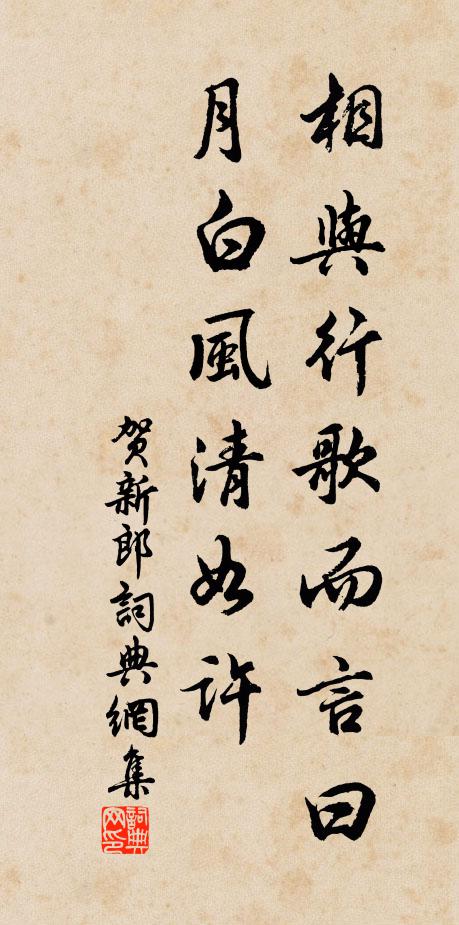 相與行歌而言曰
月白風清如許
贺新郎詞典網集
詞典網印